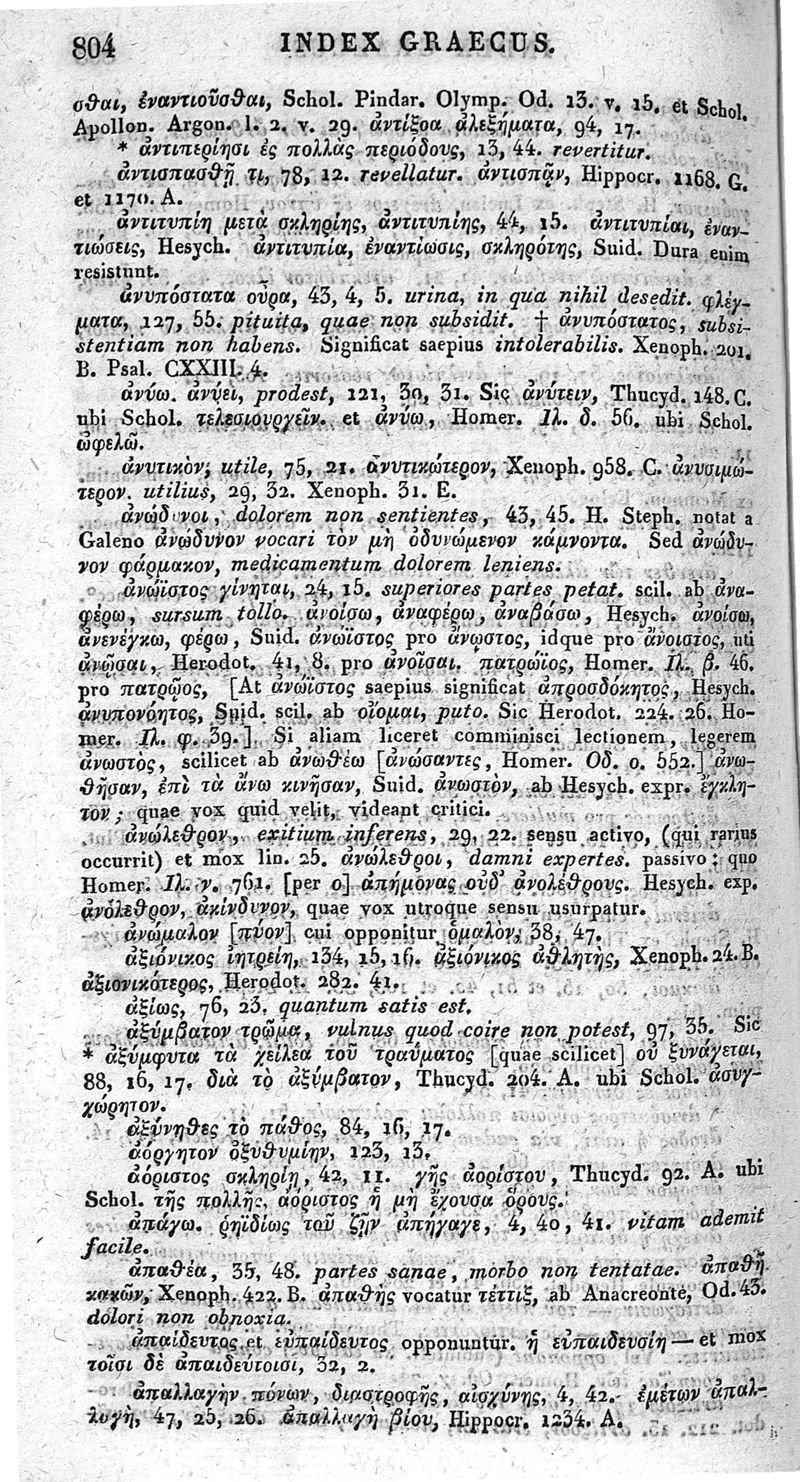 804 INDEX GRAECUS.
σθαι, ἐναντιοῦσθαι, Schol. Pindar. Olymp. Od. 13. v. 15. et Schol.
Apollon. Argon. l. 2. v. 29. ἀντίξοα ἀλεξήματα, 94, 17.
* ἀντιπερίησι ἐς πολλὰς περιόδους, 13, 44. revertitur.
ἀντισπασθῇ τι, 78, 12. revellatur. ἀντισπᾷν, Hippocr. 1168. G.
et 1170. A.
ἀντιτυπίη μετὰ σκληρίης, ἀντιτυπίης, 44, 15. ἀντιτυπίαι, ἐναν-
τιώσεις, Hesych. ἀντιτυπία, ἐναντίωσις, σκληρότης, Suid. Dura enim
resistunt.
ἀνυπόστατα οὖρα, 43, 4, 5. urina, in qua nihil desedit. φλέγ-
ματα, 127, 55. pituita, quae non subsidit. † ἀνυπόστατος, subsi-
stentiam non habens. Significat saepius intolerabilis. Xenoph. 201.
B. Psal. CXXIII. 4.
ἀνύω. ἀνύει, prodest, 121, 30, 31. Sic ἀνύτειν, Thucyd. 148. C.
ubi Schol. τελεσιουργεῖν. et ἀνύω, Homer. Ιλ. δ. 56. ubi Schol.
ὠφελῶ.
ἀνυτικὸν, utile, 75, 21. ἀνυτικώτερον, Xenoph. 958. C. ἀνυσιμώ-
τερον. utilius, 29, 32. Xenoph. 31. E.
ἀνώδυνοι, dolorem non sentientes, 43, 45. H. Steph. notat a
Galeno ἀνώδυνον vocari τὸν μὴ ὀδυνώμενον κάμνοντα. Sed ἀνώδυ-
νον φάρμακον, medicamentum dolorem leniens.
ἀνώϊστος γίνηται, 24, 15. superiores partes petat. scil. ab ἀνα-
φέρω, sursum tollo. ἀνοίσω, ἀναφέρω, ἀναβάσω, Hesych. ἀνοίσω,
ἀνενέγκω, φέρω, Suid. ἀνώϊστος pro ἄνωστος, idque pro ἄνοιστος, uti
ἀνῶσαι, Herodot. 41, 8. pro ἀνοῖσαι. πατρώϊος, Homer. Ιλ. β. 46.
pro πατρῷος, [At ἀνώϊστος saepius significat ἀπροσδόκητος, Hesych.
ἀνυπονόητος, Suid. scil. ab οἴομαι, puto. Sic Herodot. 224. 26. Ho-
mer. Ιλ. φ. 39.] Si aliam liceret comminisci lectionem, legerem
ἀνωστὸς, scilicet ab ἀνωθέω [ἀνώσαντες, Homer. Οδ. ο. 552.] ἀνω-
θῆσαν, ἐπὶ τὰ ἄνω κινῆσαν, Suid. ἀνωστὸν, ab Hesych. expr. ἔγκλη-
τον; quae vox quid velit, videant critici.
ἀνώλεθρον, exitium inferens, 29, 22. sensu activo, (qui rarius
occurrit) et mox lin. 25. ἀνώλεθροι, damni expertes. passivo; quo
Homer. Ιλ. ν. 761. [per ο] ἀπήμονας οὐδ' ἀνολέθρους. Hesych. exp.
ἀνόλεθρον, ἀκίνδυνον, quae vox utroque sensu usurpatur.
ἀνώμαλον [πῦον] cui opponitur ὁμαλὸν, 38, 47.
ἀξιόνικος ἰητρείη, 134, 15, 16. ἀξιόνικος ἀθλητής, Xenoph. 24. B.
ἀξιονικότερος, Herodot. 282. 41.
ἀξίως, 76, 23. quantum satis est.
ἀξύμβατον τρῶμα, vulnus quod coire non potest, 97, 35. Sic
* ἀξύμφυτα τὰ χείλεα τοῦ τραύματος [quae scilicet] οὐ ξυνάγεται,
88, 16, 17. διὰ τὸ ἀξύμβατον, Thucyd. 204. A. ubi Schol. ἀσυγ-
χώρητον.
ἀξύνηθες τὸ πάθος, 84, 16, 17.
ἀόργητον ὀξυθυμίην, 123, 13.
ἀόριστος σκληρίη, 42, 11. γῆς ἀορίστου, Thucyd. 92. A. ubi
Schol. τῆς πολλῆς. ἀόριστος ἡ μὴ ἔχουσα ὅρους.
ἀπάγω. ῥηϊδίως τοῦ ζῇν ἀπήγαγε, 4, 40, 41. vitam ademit
facile.
ἀπαθέα, 35, 48. partes sanae, morbo non tentatae. ἀπαθῆ
κακῶν, Xenoph. 422. B. ἀπαθὴς vocatur τέττιξ, ab Anacreonte, Od. 43.
dolori non obnoxia.
ἀπαίδευτος et εὐπαίδευτος opponuntur. ἡ εὐπαιδευσίη — et mox
τοῖσι δὲ ἀπαιδεύτοισι, 32, 2.
ἀπαλλαγὴν πόνων, διαστροφῆς, αἰσχύνης, 4, 42. ἐμέτων ἀπαλ-
λαγὴ, 47, 25, 26. ἀπαλλαγὴ βίου, Hippocr. 1234. A.